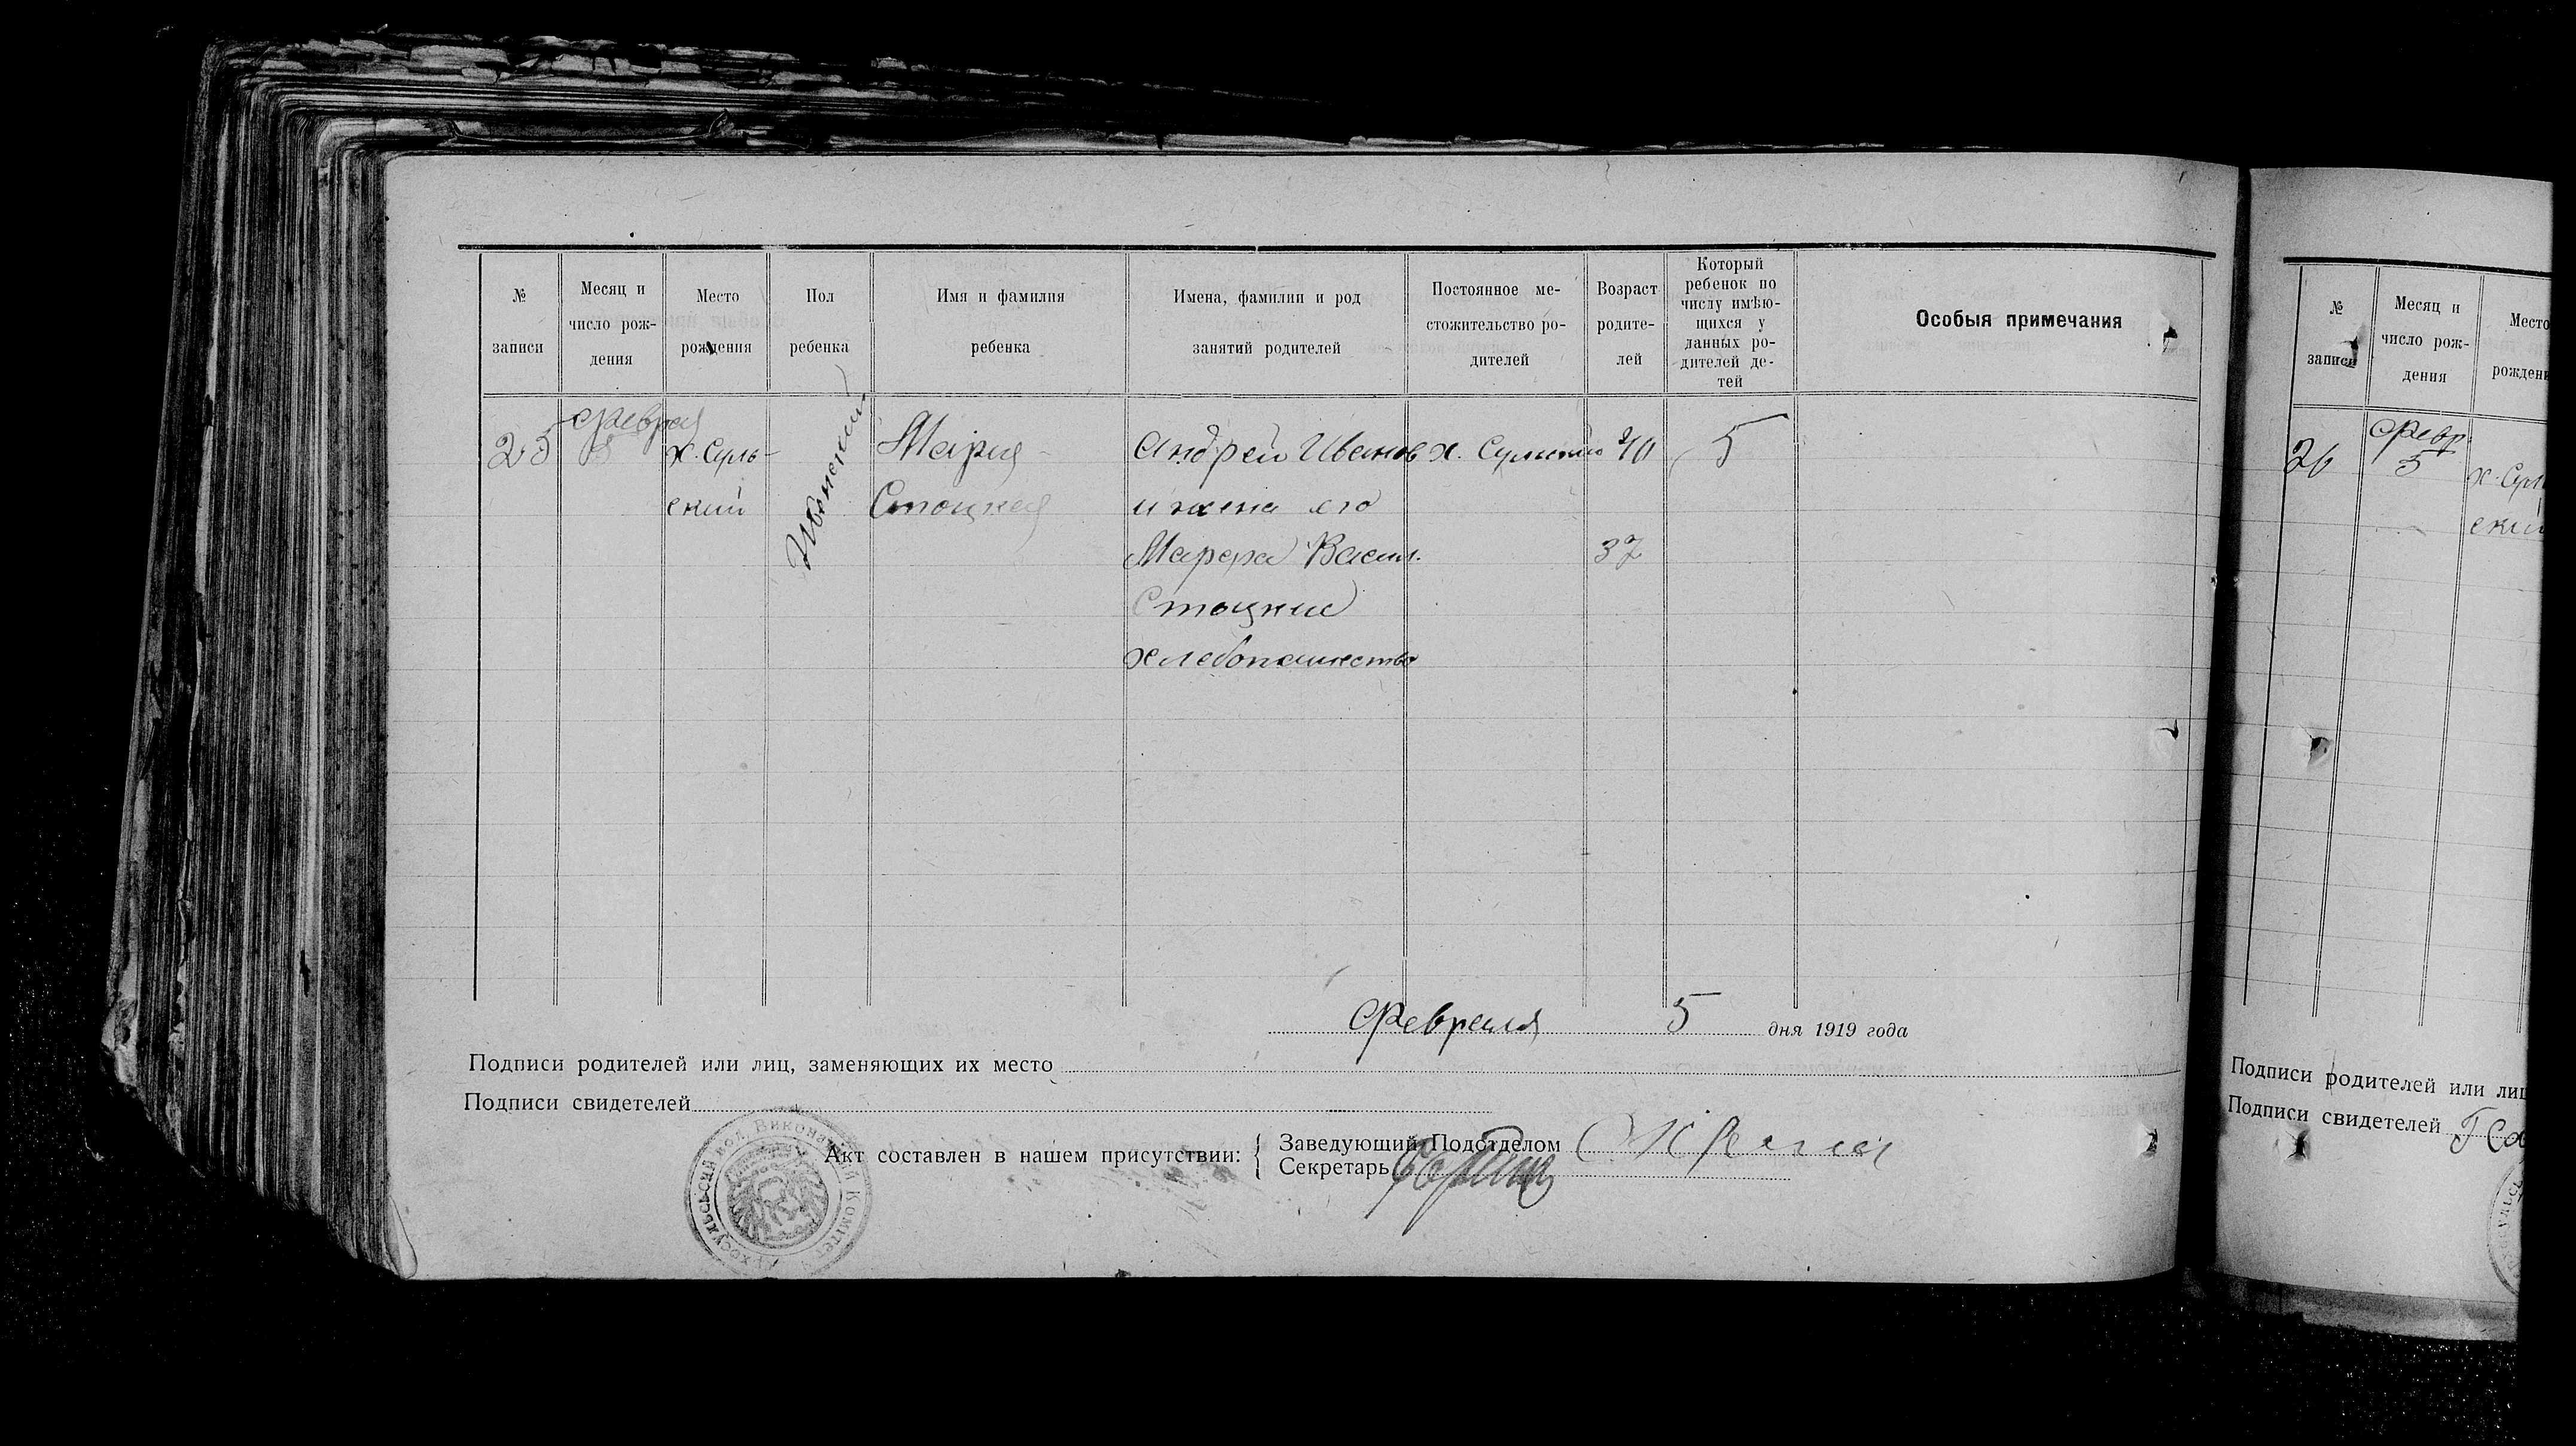 № записи
Месяц и число рождения
Место рождения
Пол ребенка
Имя и фамилия ребенка
Имена, фамилии и род занятий родителей
Постоянное местожительство родителей
Возраст родителей
Который ребенок по числу имѣющихся у данных родителей детей
Особыя примечания
25
Феврал
х. Суль-
ский
Женский
Мария
Стоцкая
Андрей Иванов
и жена его
Марфа Васил.
Стоцкие
хлебопашество
х. Сульский
40
37
5
Февраля 5 дня 1919 года
Подписи родителей или лиц, заменяющих их место
Подписи свидетелей
Акт составлен в нашем присутствии:
Заведующий Подотделом
Секретарь
вол. Виконавчий Комітет
№ записи
Месяц и число рож-
дения
Место
рожден
26
Февр.
5
х. Сул
ски
Подписи родителей или лиц
Подписи свидетелей